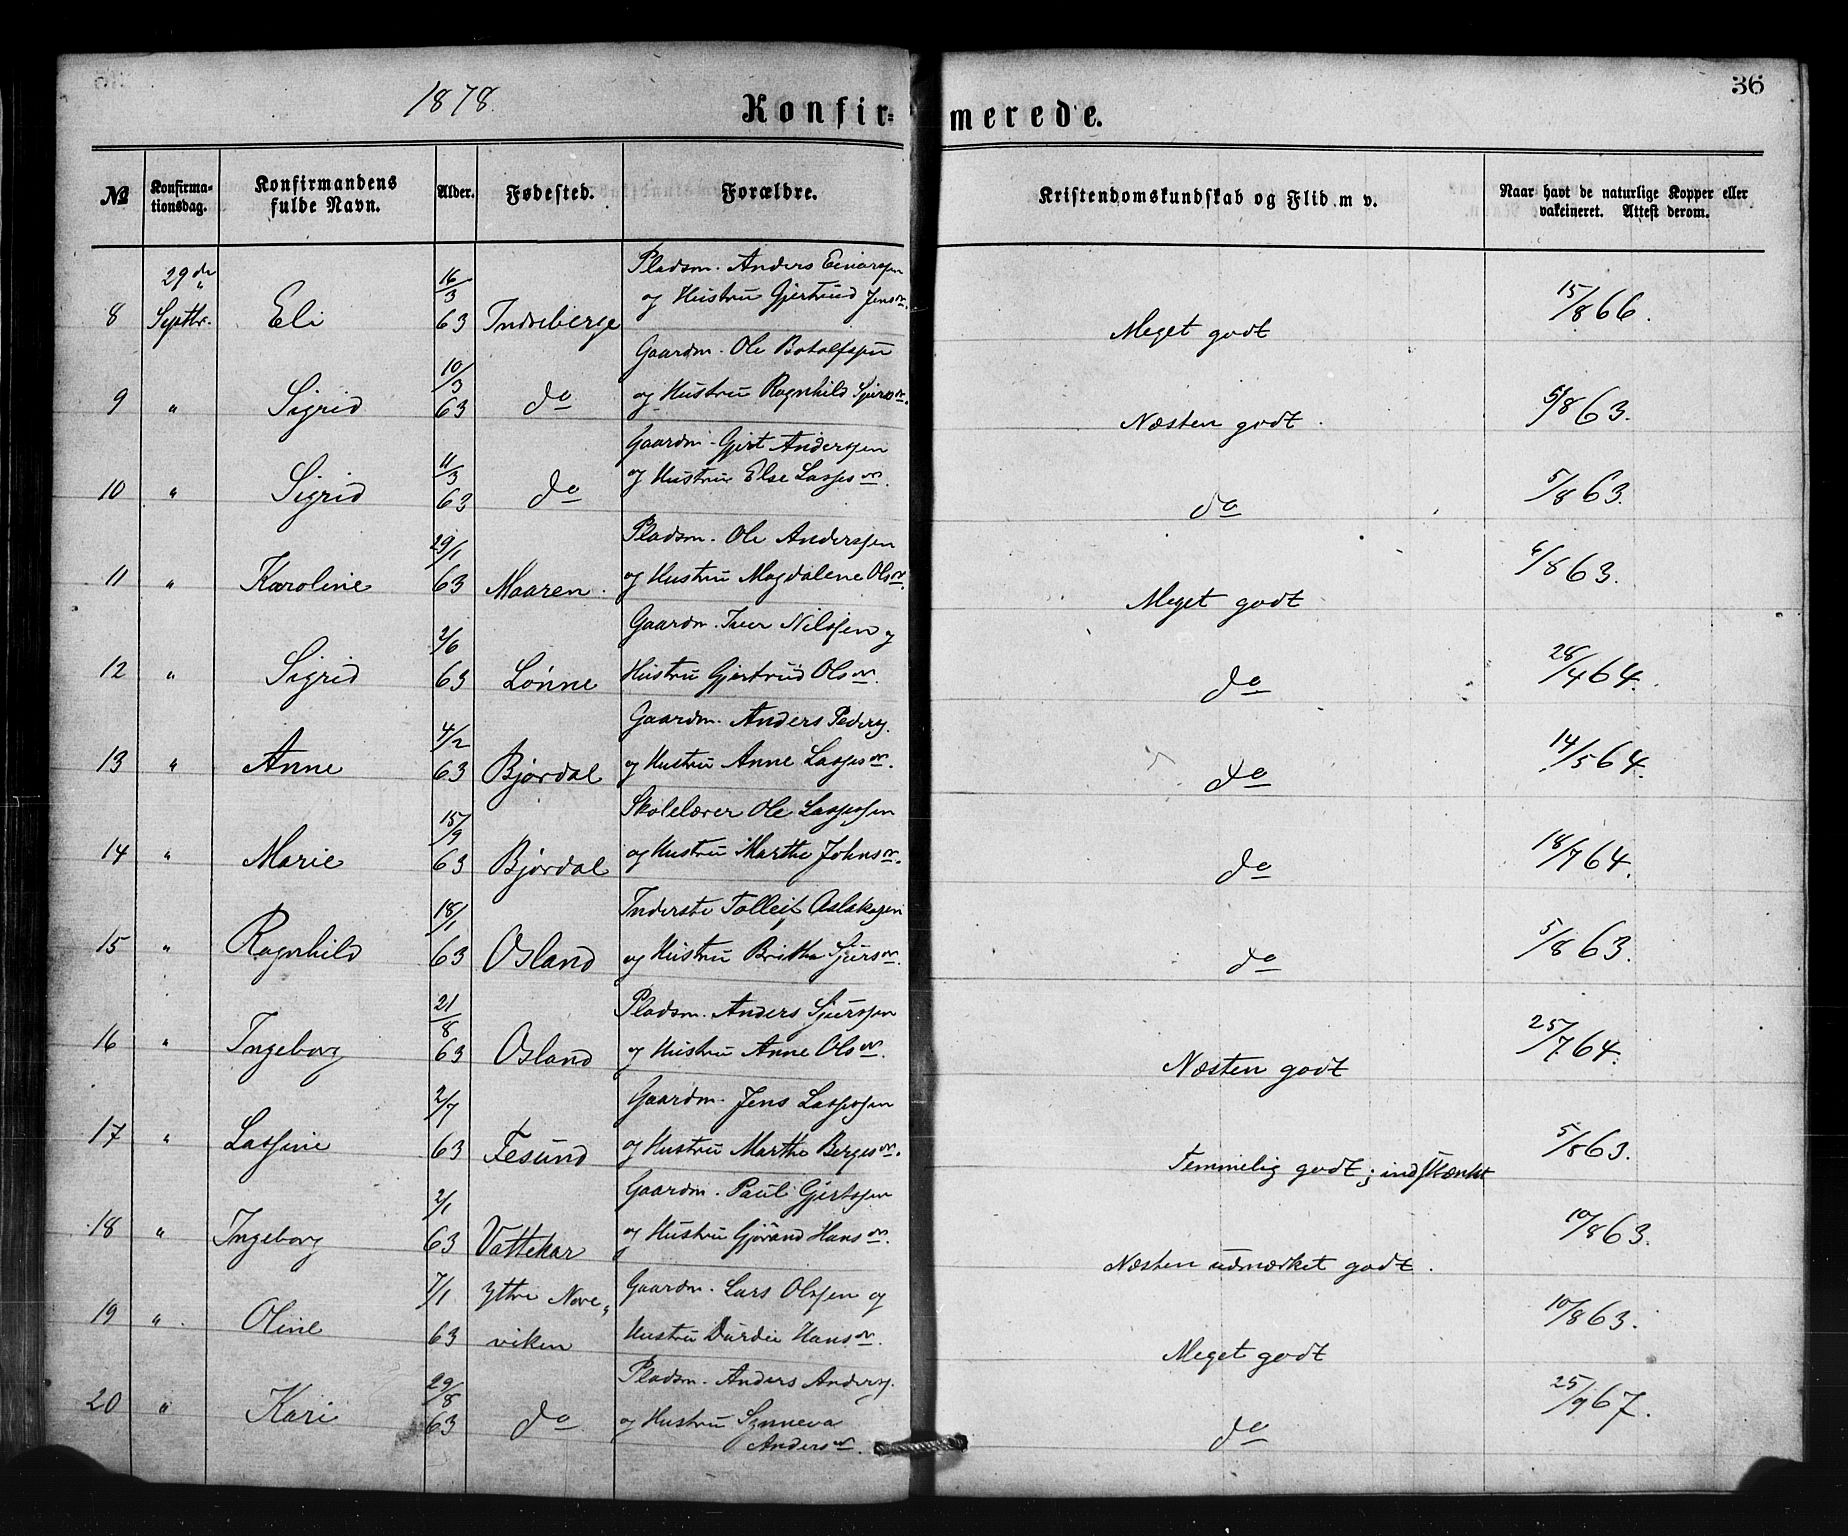 36
1878.
Konfir= merede.
№
Konfirma-
tionsdag.
Konfirmandens
fulde Navn.
Alder.
Fødested.
Forældre.
Kristendomskundskab og Flid m v.
Naar havt de naturlige Kopper eller
vakcineret. Attest derom.
8 29de Septbr. Eli 16/3 63 Indreberge Pladsm. Anders Einarsen
og Hustru Gjertrud Jensdr. Meget godt 15/8 66.
9 " Sigrid 10/3 63 do Gaardm. Ole Botolfsen
og Hustru Ragnhild Sjursdr. Næsten godt. 5/8 63.
10 " Sigrid 11/3 63 do Gaardm. Gjert Anderssen
og Hustru Else Lassesdr. do 5/8 63.
11 " Karoline 29/1 63 Maaren. Pladsm. Ole Anderssen
og Hustru Magdalene Olsdr. Meget godt 6/8 63.
12 " Sigrid 2/6 63 Lønne Gaardm. Iver Nilssen og
Hustru Gjertrud Olsdr. do 28/4 64.
13 " Anne 4/2 63 Bjørdal Gaardm. Anders Peders.
og Hustru Anne Lassesdr. do 14/5 64.
14 " Marie 15/9 63 Bjørdal Skolelærer Ole Lassesen
og Hustru Marthe Johnsdr. do 18/7 64.
15 " Ragnhild 18/1 63 Osland Inderste Tolleif Aslaksen
og Hustru Britha Sjursdr. do 5/8 63.
16 " Ingeborg 21/8 63 Osland Pladsm. Anders Sjurssen
og Hustru Anne Olsdr. Næsten godt 25/7 64.
17 " Lassine 2/7 63 Tesund Gaardm. Jens Lassesen
og Hustru Marthe Bergesdr. Temmelig godt; indskænkt 5/8 63.
18 " Ingeborg 2/1 63 Vattekar Gaardm. Paul Gjertsen
og Hustru Gjørand Hansdr. Næsten udmærket godt. 10/8 63.
19 " Oline 7/1 63 Yttre Nore=
viken Gaardm. Lars Olssen og
Hustru Durdei Hansdr. Meget godt 10/8 63.
20 " Kari 29/8 63 do Pladsm. Anders Anders.
og Hustru Synneva
Andersdr. do 25/9 67.